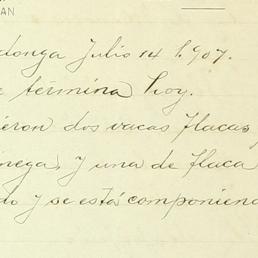 AN
donga Julio 14 1.907.
e términa hoy.
ieron dos vacas flacas,
nega, y una de flaca
do y se está componien